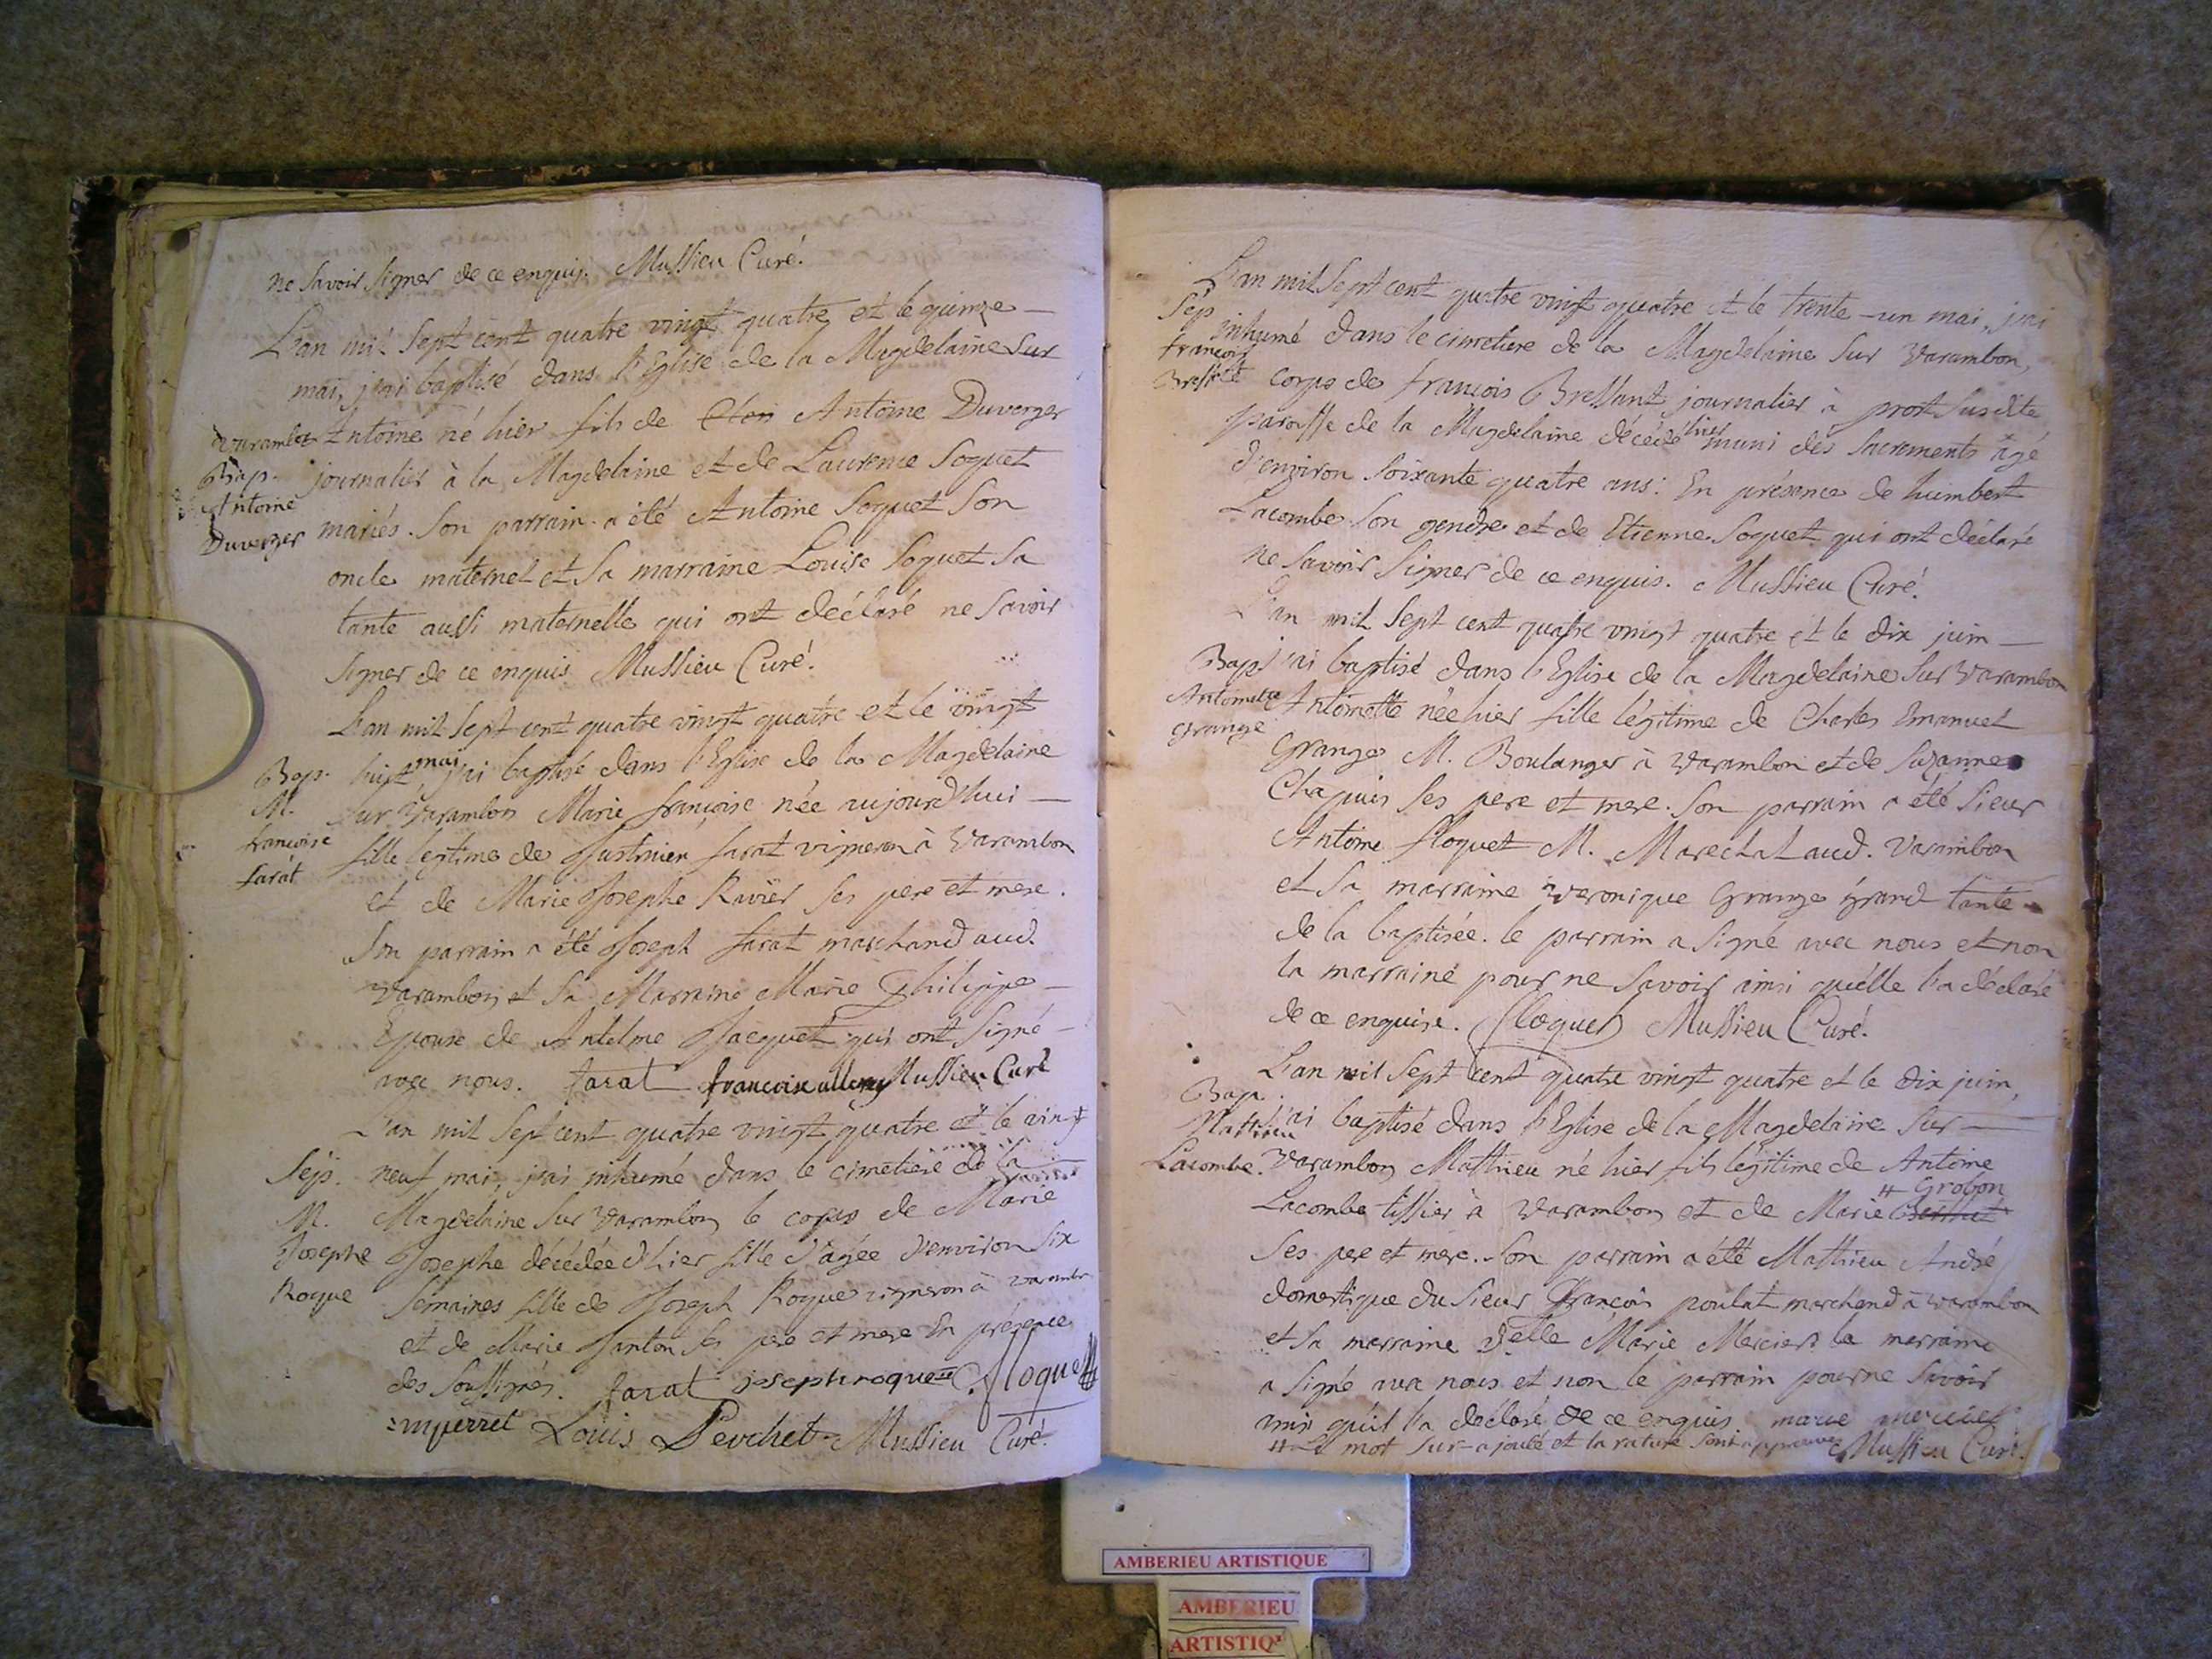 ne savoir signer de ce enquis. Mussieu Curé.
L'an mil sept cent quatre vingt quatre et le quinze —
mai, j'ai baptisé dans l'Eglise de la Magdelaine sur
varambon Antoine né hier fils de Antoine Duverger
Bap.
Antoine
Duverger
journalier à la Magdelaine et de Laurence Soquet
mariés. Son parrain a été Antoine Soquet son
oncle maternel et sa marraine Louise Soquet sa
tante aussi maternelle qui ont déclaré ne savoir
signer de ce enquis Mussieu Curé.
L'an mil sept cent quatre vingt quatre et le vingt
Bap.
M.
françoise
farat
huit mai j'ai baptisé dans l'Eglise de la Magdelaine
sur Varambon Marie françoise née aujourd'hui —
fille legitime de Justinien farat vigneron à Varambon
et de Marie Josephe Ravier ses pere et mere.
Son parrain a été Joseph farat marchand aud.
Varambon et sa Marraine Marie Philippe —
Epouse de Antelme Jacquet qui ont signé —
avec nous. farat Mussieu Curé
L'an mil sept cent quatre vingt quatre et le vingt
Sep.
M.
Josephe
Roque
neuf mai, j'ai inhumé dans le cimetiere de la
Magdelaine sur Varambon le corps de Marie
Josephe décédée d'hier fille d'agée d'environ six
semaines fille de Joseph Roque vigneron à varambon
et de Marie Janton ses pere et mere En présence
des soussignés. farat joseph roque floquet
Louis Peuchet Mussieu Curé.
L'an mil sept cent quatre vingt quatre et le trente-un mai, j'ai
Sep
françois
Bressant
inhumé dans le cimetiere de la Magdelaine sur Varambon,
corps de francois Bressant journalier à prot susdite
paroisse de la Magdelaine décédé hier muni des sacrements agé
d'environ soixante quatre ans. En présence de humbert
Lacombe son gendre et de Etienne Soquet qui ont déclaré
ne savoir signer de ce enquis. Mussieu Curé.
L'an mil sept cent quatre vingt quatre et le dix juin —
Bap
Antoinette
Grange
j'ai baptisé dans l'Eglise de la Magdelaine sur Varambon
Antoinette née hier fille légitime de Charles Emanuel
Grange M. Boulanger à Varambon et de Suzanne
Chapuis ses pere et mere. Son parrain a été Sieur
Antoine floquet M. Marechal aud. Varambon
et sa marraine Veronique Grange grand tante
de la baptisée. le parrain a signé avec nous et non
la marraine pour ne savoir ainsi qu'elle l'a déclaré
de ce enquise. floquet Mussieu Curé.
L'an mil sept cent quatre vingt quatre et le dix juin,
Bap.
Mathieu
Lacombe.
j'ai baptisé dans l'Eglise de la Magdelaine sur —
Varambon Mathieu né hier fils légitime de Antoine
Lacombe tissier à Varambon et de Marie # Grobon
ses pere et mere. Son parrain a été Mathieu André
domestique du Sieur François poulat marchand à varambon
et sa marraine Delle Marie Mercier. la marraine
a signé avec nous et non le parrain pour ne savoir
ainsi qu'il l'a declaré de ce enquis marie mercier
# Le mot sur-ajouté et la rature sont approuvés Mussieu Curé.
AMBERIEU ARTISTIQUE
AMBERIEU
ARTISTIQ